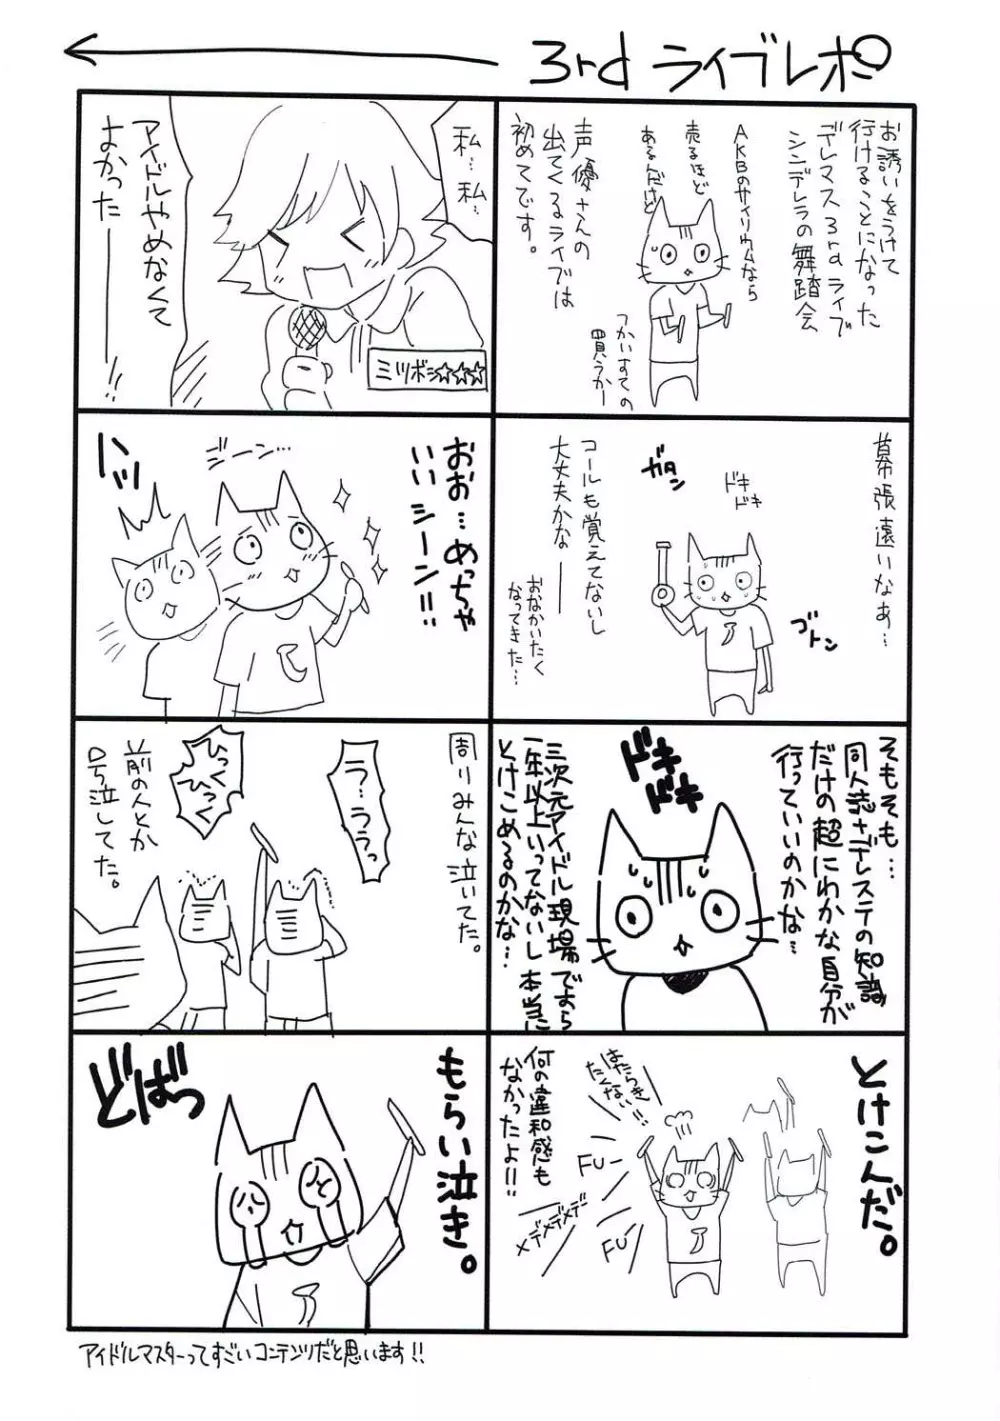 3rd ライブレポ
お誘いをうけて
行けることになった
デレマス3rdライブ
シンデレラの舞踏会
AKBのサイリウムなら
売るほど
あるんだけど
声優さんの
出てくるライブは
初めてです。
つかいすての
買うかー
幕張遠いなぁ…
ドキ
ドキ
ガタン
ゴトン
コールも覚えてないし
大丈夫かな――
おなかいたく
なってきた…
そもそも…
同人誌+デレステの知識
だけの超にわかな自分が
行っていいのかな…
ドキ
ドキ
三次元アイドル現場ですら
一年以上いってないし本当に
とけこめるのかな…
とけこんだ。
はたらき
たくない!!
FU-
FU-
メデメデメデ
何の違和感も
なかったよ!!
私…私…
アイドルやめなくて
よかった――!!
ミツボシ☆☆★
おお…めっちゃ
いいシーン!!
ジーン…
ハッ
周りみんな泣いてた。
うっ…ううっ
ひっくひっく
前の人とか
号泣してた。
もらい泣き。
どばっ
アイドルマスターってすごいコンテンツだと思います!!